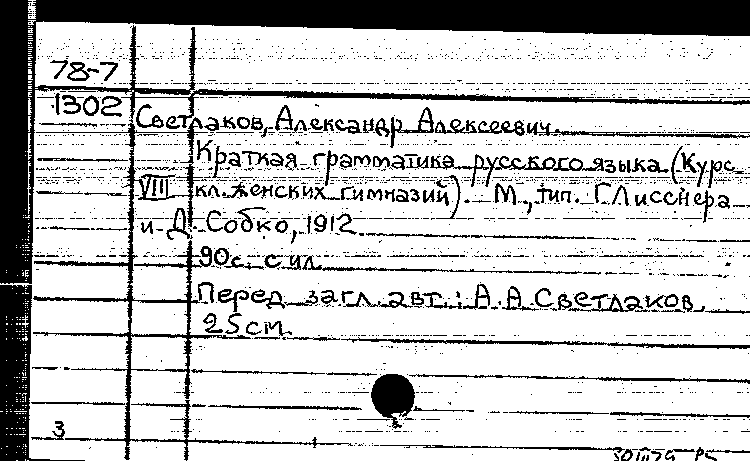 78-7
1302
Светлаков, Александр Алексеевич.
Краткая грамматика русского языка. (Курс
VIII кл. женских гимназий). М., тип. Г.Лисснера
и Д. Собко, 1912
90с. с ил.
Перед загл. авт.: А.А Светлаков.
25см.
3